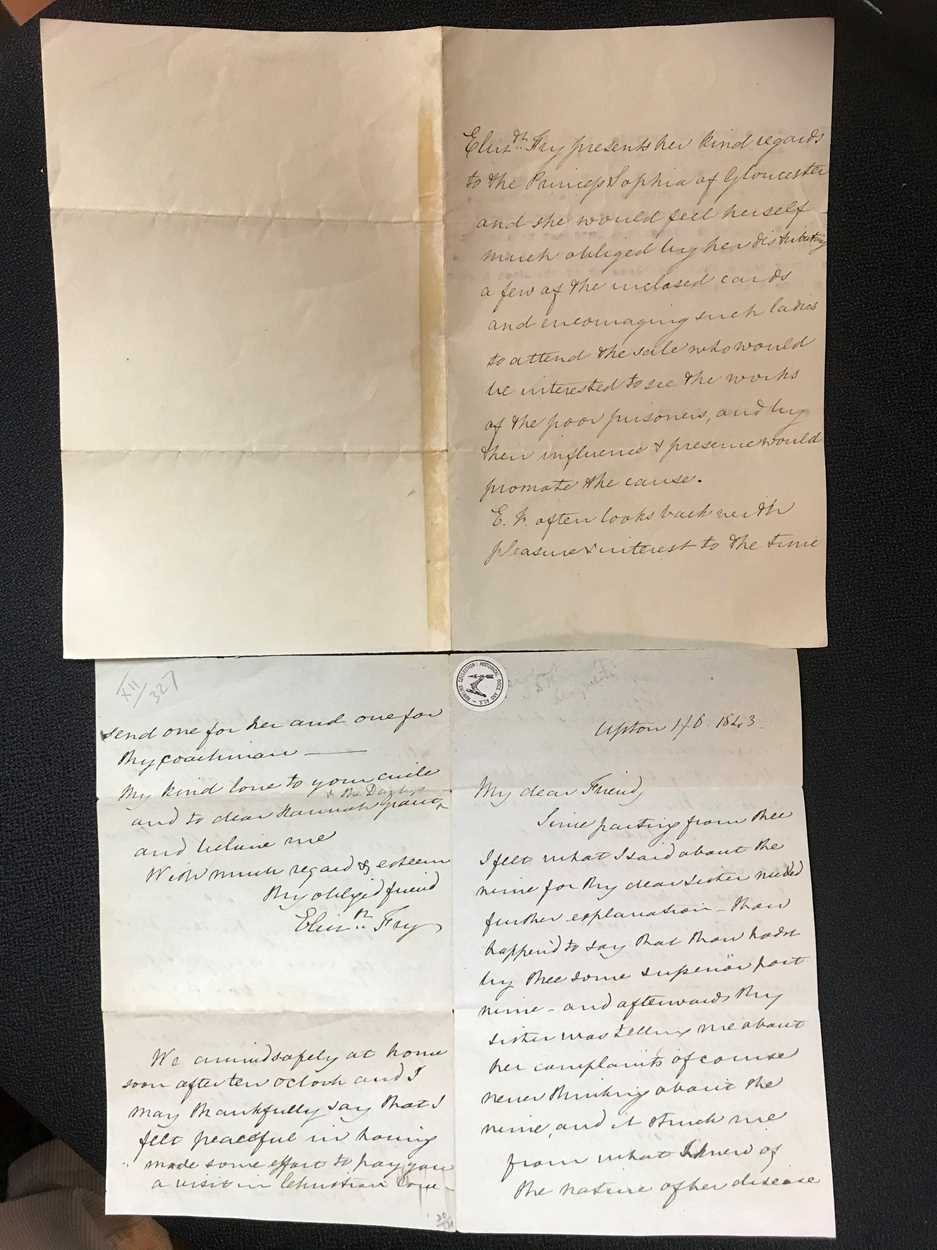 Eliz.th Fry presents her kind regards
to the Princess Sophia of Gloucester
and she would feel herself
much obliged by her distributing
a few of the inclosed cards
and encouraging such ladies
to attend the sale who would
be interested to see the works
of the poor prisoners, and by
their influence & presence would
promote the cause.
E. F. often looks back with
pleasure & interest to the time
XII
327
send one for her and one for
thy coachman —
My kind love to your circle
& the
and to dear Hannah
and believe me
With much regard & esteem
thy obliged friend
Eliz.th Fry
We arrived safely at home
soon after ten o'clock and I
may thankfully say that I
felt peaceful in having
made some effort to pay you
a visit in Christian love
Upton 1843
My dear Friend
Since parting from thee
I felt what I said about the
wine for thy dear sister needed
further explanation – thou
happend to say that thou hadst
by thee some superior port
wine – and afterwards thy
sister was telling me about
her complaints of course
never thinking about the
wine, and it struck me
from what I knew of
the nature of her disease